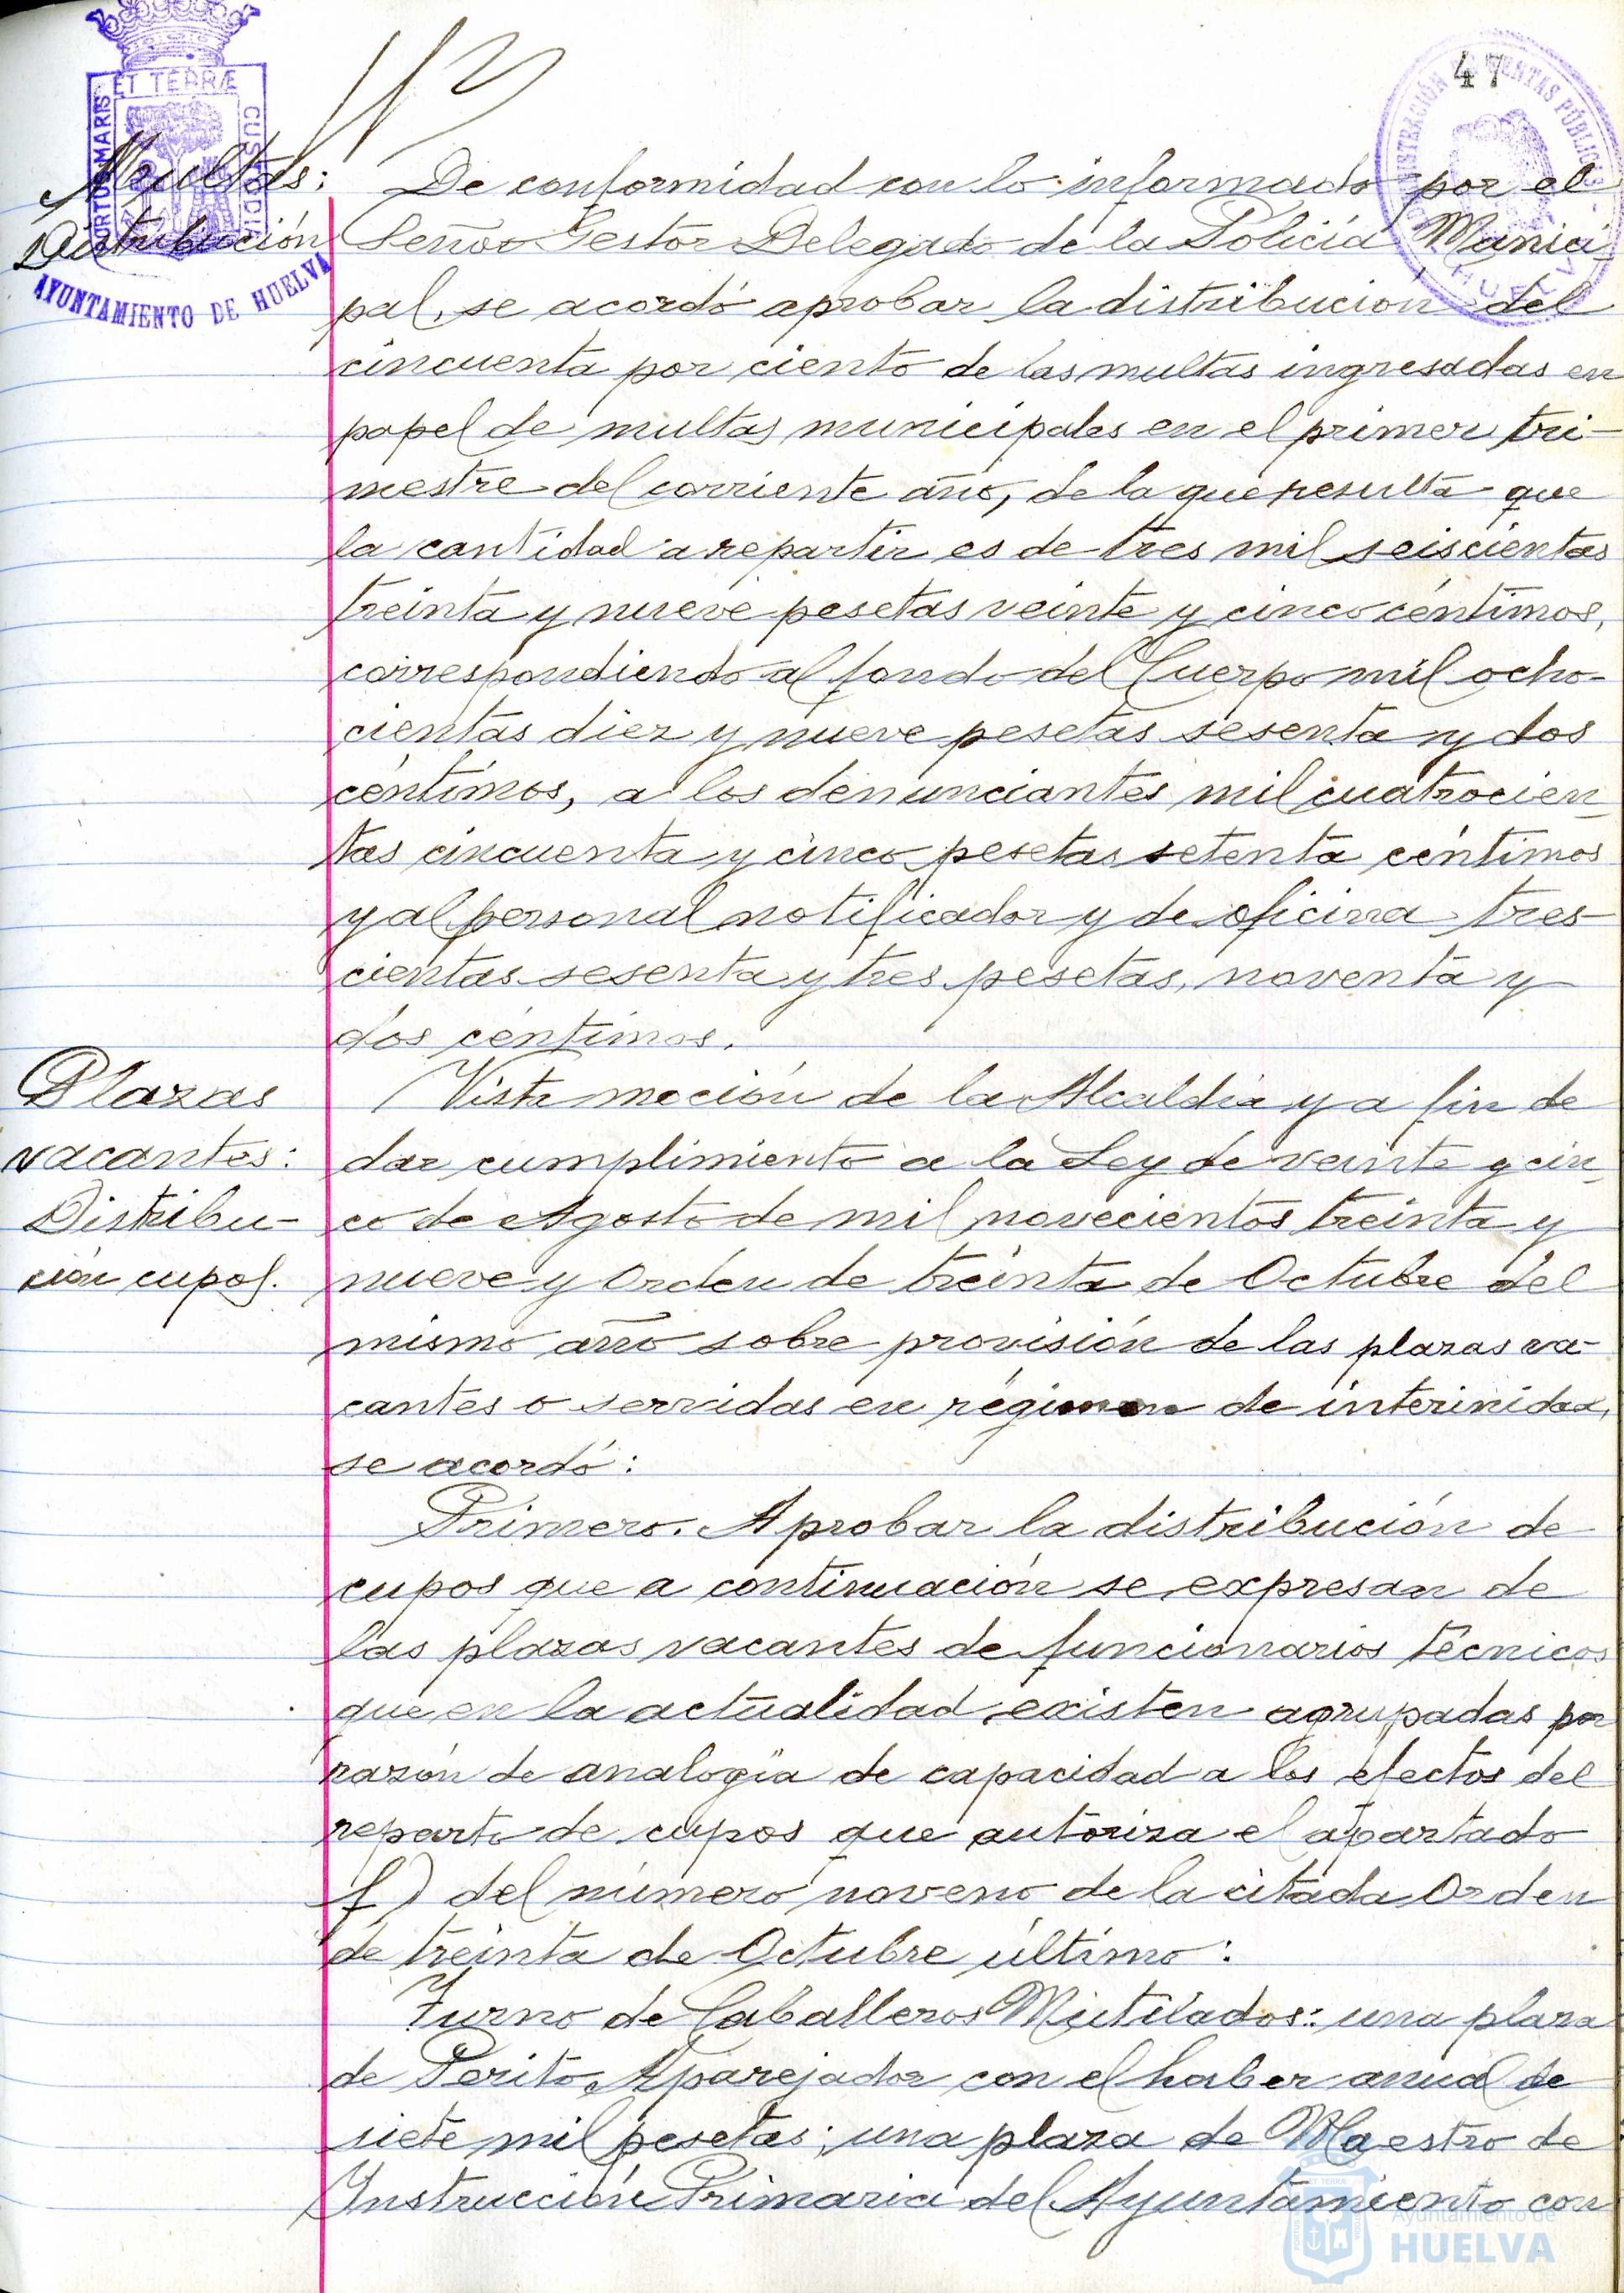 47
PORTUS MARIS ET TERRÆ CUSTODIA
AYUNTAMIENTO DE HUELVA
Multas:
Distribución
De conformidad con lo informado por el
Señor Gestor Delegado de la Policía Munici-
pal, se acordó aprobar la distribución del
cincuenta por ciento de las multas ingresadas en
papel de multas municipales en el primer tri-
mestre del corriente año, de la que resulta que
la cantidad a repartir es de tres mil seiscientas
treinta y nueve pesetas veinte y cinco céntimos,
correspondiendo al fondo del Cuerpo mil ocho-
cientas diez y nueve pesetas sesenta y dos
céntimos, a los denunciantes mil cuatrocien-
tas cincuenta y cinco pesetas setenta céntimos
y al personal notificador y de oficina tres-
cientas sesenta y tres pesetas, noventa y
dos céntimos.
Plazas
vacantes:
Distribu-
ción cupos.
Vista moción de la Alcaldía y a fin de
dar cumplimiento a la Ley de veinte y cin-
co de Agosto de mil novecientos treinta y
nueve y Orden de treinta de Octubre del
mismo año sobre provisión de las plazas va-
cantes o servidas en régimen de interinidad,
se acordó:
Primero. Aprobar la distribución de
cupos que a continuación se expresan de
las plazas vacantes de funcionarios técnicos
que en la actualidad existen agrupadas por
razón de analogía de capacidad a los efectos del
reparto de cupos que autoriza el apartado
f) del número noveno de la citada Orden
de treinta de Octubre último:
Turno de Caballeros Mutilados: una plaza
de Perito Aparejador con el haber anual de
siete mil pesetas; una plaza de Maestro de
Instrucción Primaria del Ayuntamiento con
Ayuntamiento de
HUELVA